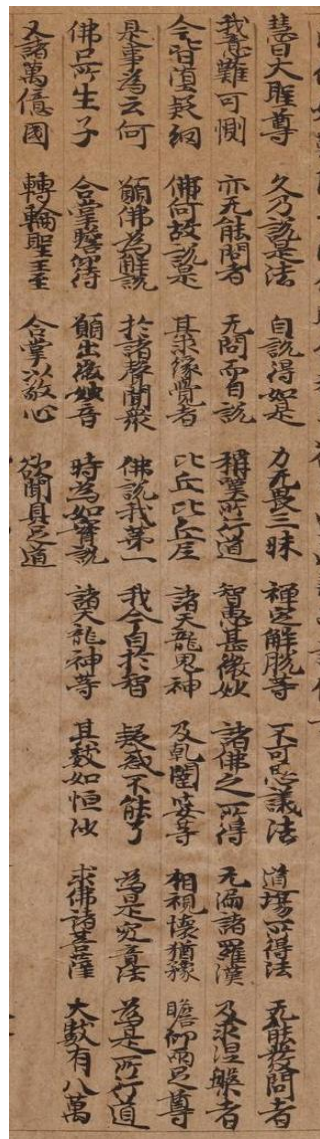 慧日大聖尊 久乃說是法 自說得如是 力无畏三昧 禪定解脫等 不可思議法 道場所得法 无能發問者
我意難可測 亦无能問者 无問而自說 稱嘆所行道 智慧甚微妙 諸佛之所得 无漏諸羅漢 及求涅槃者
今皆墮疑網 佛何故說是 其求緣覺者 比丘比丘尼 諸天龍鬼神 及乾闥婆等 相視懷猶豫 瞻仰兩足尊
是事為云何 願佛為解說 於諸聲聞眾 佛說我第一 我今自於智 疑惑不能了 為是究竟法 為是所行道
佛口所生子 合掌瞻仰待 願出微妙音 時為如實說 諸天龍神等 其數如恒沙 求佛諸菩薩 大數有八萬
又諸萬億國 轉輪聖王至 合掌以敬心 欲聞具足道